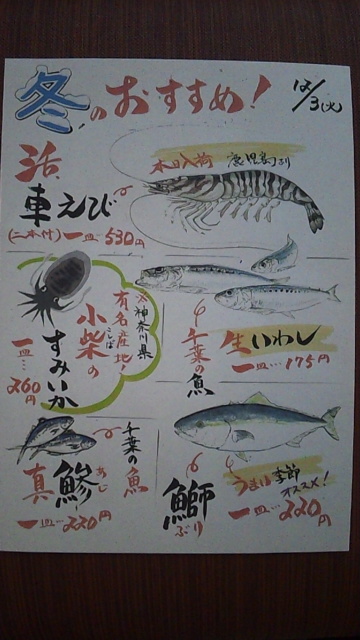 冬のおすすめ!
12/3(火)
活
車えび
(二本付)一皿…530円
本日入荷 鹿児島より
※神奈川県
有名産地!
小柴の
こしば
すみいか
一皿…260円
千葉の魚
生いわし
一皿…175円
千葉の魚
真鯵
あじ
一皿…220円
鰤
ぶり
うまい季節
オススメ!
一皿…220円